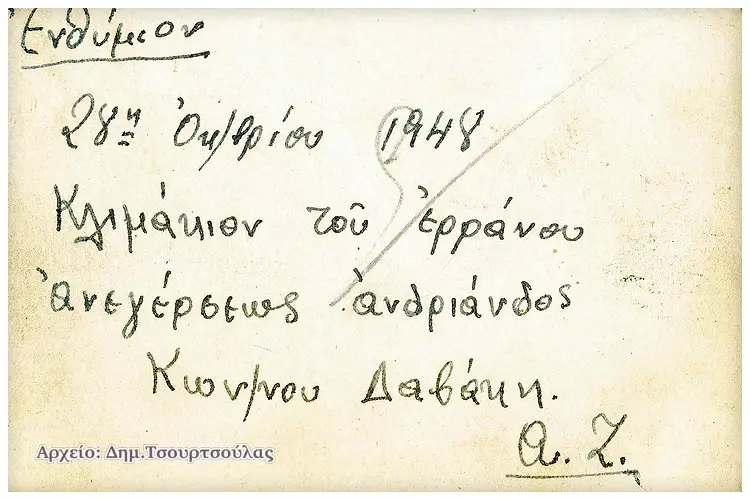 Ἐνθύμιον
28ηⁿ Ὀκ/βρίου 1948
Κλιμάκιον τοῦ ἐρράνου
ἀνεγέρσεως ἀνδριάνδος
Κων/νου Δαβάκη.
Α. Ζ.
Αρχείο: Δημ.Τσουρτσούλας